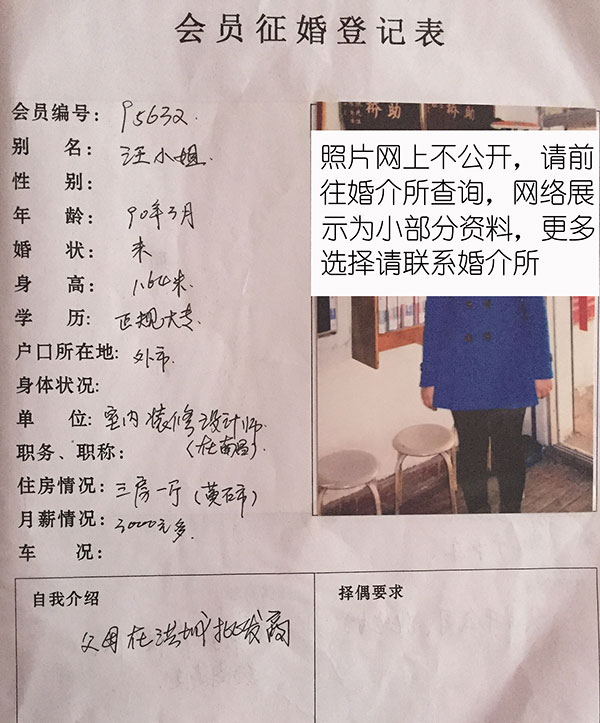 会员征婚登记表
会员编号: 95632.
别 名: 汪小姐.
性 别:
年 龄: 90年3月
婚 状: 未
身 高: 1.64米.
学 历: 正规大专.
户口所在地: 外市.
身体状况:
单 位: 室内装修设计师.
(在南昌).
职务、职称:
住房情况: 三房一厅(黄石市)
月薪情况: 3000元多.
车 况:
桥 助
照片网上不公开，请前
往婚介所查询，网络展
示为小部分资料，更多
选择请联系婚介所
自我介绍
父母在洪城批发商
择偶要求